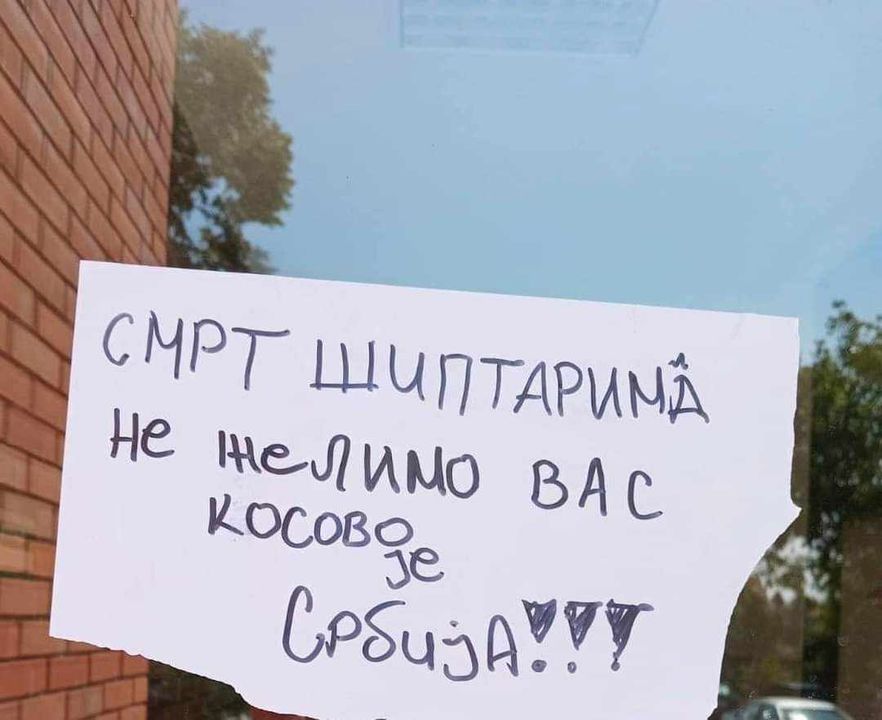 СМРТ ШИПТАРИМА
Не желимо ВАС
КОСОВО
је
СРбијА!!!